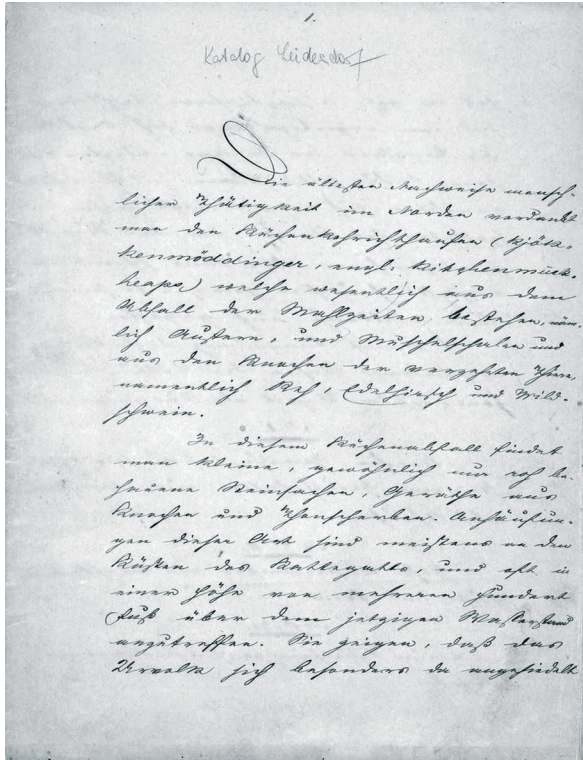 1.
Katalog Leidesdorf
Die ältesten Nachweise mensch-
licher Thätigkeit im Norden verdankt
man den Küchenkehrichthaufen (Kjök-
kenmöddinger, engl. Kitchenmuck-
heaps) welche wesentlich aus dem
Abfall der Mahlzeiten bestehen, näm-
lich Austern, und Muschelschalen und
aus den Knochen der verzehrten Thiere,
namentlich Reh, Edelhirsch und Wild-
schwein.
In diesem Küchenabfall findet
man kleine, gewöhnlich nur roh be-
hauene Steinsachen, Geräthe aus
Knochen und Thonscherben. Anhäufun-
gen dieser Art sind meistens an den
Küsten des Kattegatts, und oft in
einer Höhe von mehreren hundert
Fuß über dem jetzigen Wasserstand
anzutreffen. Sie zeigen, daß das
Urvolk sich besonders da angesiedelt